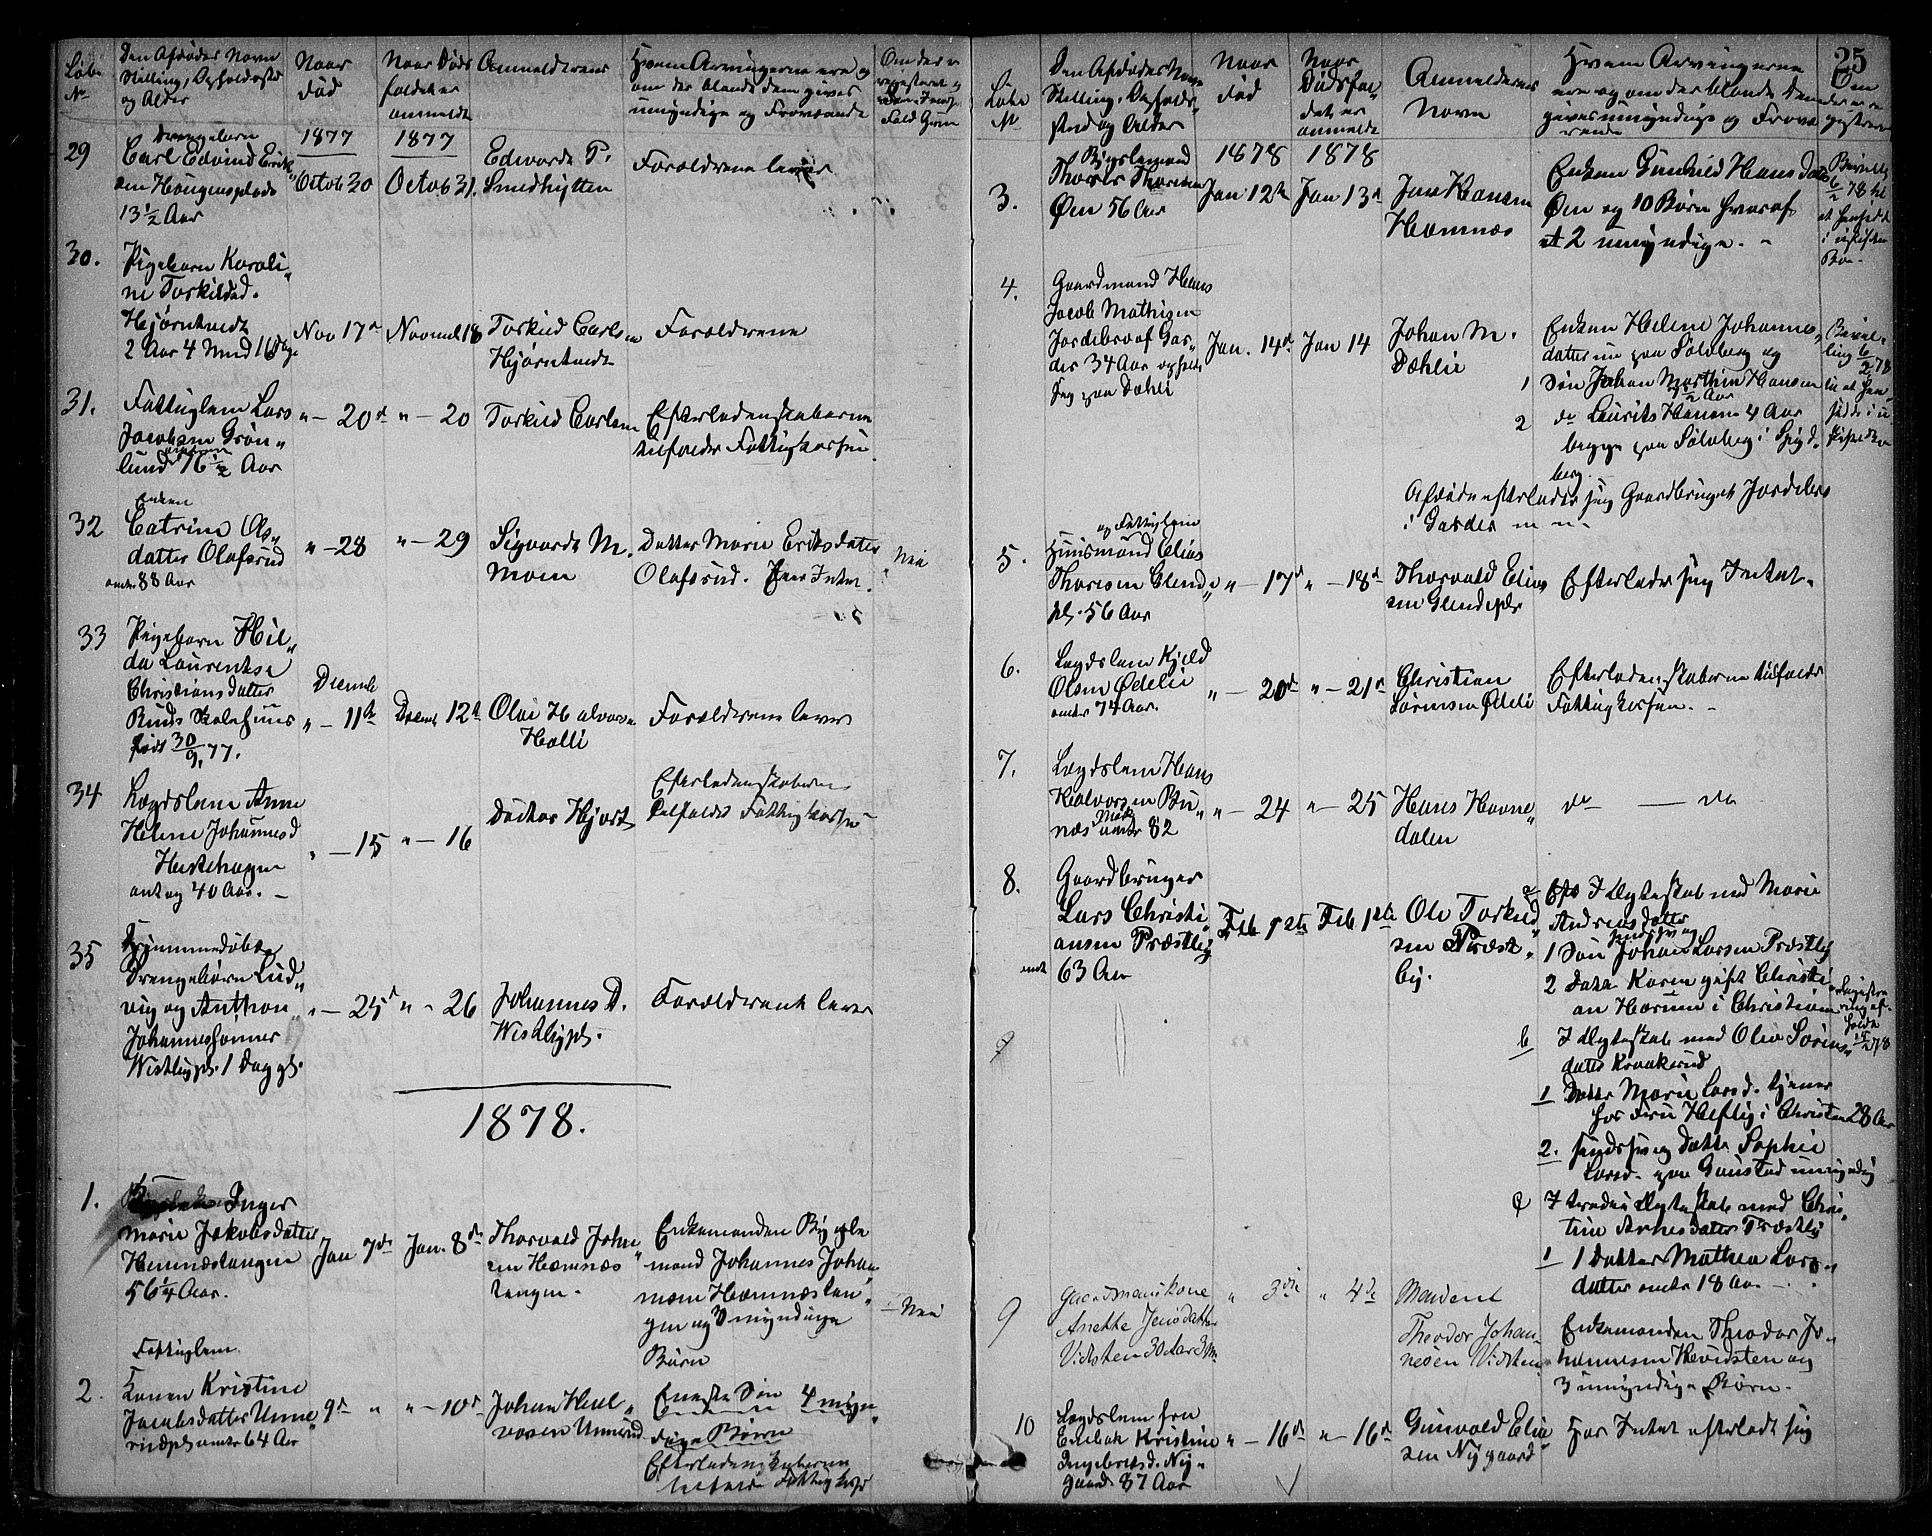 Løbe
No
Den Afdødes Navn
Stilling, Opholdssted
og Alder
Naar
Død
Naar Døds
faldet er
anmeldt
Anmelderens
Hvem Arvingerne ere og
om der blandt dem gives
umyndige og Fraværende
Om der er
registreret
29
Drengebarn
Carl Edvind Erik
sen Haugensplads
13 1/2 Aar
1877
Octob 30
1877
Octob 31.
Edvardt P.
Smedhytten
Forældrene lever
30.
Pigebarn Karoli
ne Torkildsd.
Hjørntvedt
2 Aar 4 Mnd 16 Dage
Nov 17de
Novembr 18
Torkild Carlsen
Hjørntvedt
Forældrene
31.
Fattiglem Lars
Jacobsen Grøn
lund 76 1/2 Aar
" - 20de
" - 20
Torkild Carlsen
Efterladenskaberne
tilfalder Fattigkassen
32
Enken
Catrine Ols
datter Olafsrud
omtr 88 Aar
" - 28
" - 29
Sigvardt M.
Moen
Datter Marie Eriksdatter
Olafsrud. Intet.
Nei
33
Pigebarn Hil
da Laurentse
Christiansdatter
Ruds Skolehuus
født 30/9 77.
Decemb
" - 11te
Decemb 12te
Olai Halvors
Hælli
Forældrene lever
34
Lægdslem Anne
Helene Johannesd
Heskehagen
antog 40 Aar. -
" - 15
" - 16
Doctor Hjort
Efterladenskaberne
tilfalder Fattigkassen
35
Hjemmedøbte
Drengebørn Lud
vig og Anthon
Johannessønner
Wistbypl. 1 Dag gl.
" - 25de
" - 26
Johannes D.
Wistbypl.
Forældrene lever
1878.
1.
Inger
Marie Jakobsdatter
Hemnæstangen
56 1/4 Aar.
Jan 7de
Jan. 8de
Thorvald Johan
sen Hæmnæs
tangen.
Enkemanden Bygsle
mand Johannes Johan
nesen Hæmnæstan
gen og 3 myndige
Børn
Nei
2.
Fattiglem.
Konen Kristine
Jacobsdatter Unne
rudpl omtr 64 Aar
9de "
" - 10de
Johan Hal
vorsen Unnerud
Eneste Søn 4 myn
dige Børn
Efterladenskaberne
tilfalder Fattigkas
25
Løbe
No
Den Afdødes Navn
Stilling, Opholds
sted og Alder
Naar
Død
Naar
Dødsfal
det er
anmeldt
Anmelderens
Navn
Hvem Arvingerne
ere og om der blandt dem
gives umyndige og Fravæ
rende
Om
der er re
gistreret
3.
Bygslemand
Thores Thoresen
Øen 56 Aar
1878
Jan 12te
1878
Jan 13de
Jens Hansen
Hæmnæs
Enken Gunhild Hansdatter
Øen og 10 Børn hvoraf
2 umyndige. -
Bevilling
6/2 78 til
at hensidde
i uskiftet
Bo.
4.
Gaardmand Hans
Jacob Mathisen
Jordebro af Gar
der 34 Aar ophold
sig paa Dæhli
Jan. 14de
Jan 14
Johan M.
Dæhlie
Enken Helene Johannes
datter nu paa Sølvberg og
1 Søn Johan Marthin Hansen
7 1/2 Aar
2 do Laurits Hansen 4 Aar
begge paa Sølvberg i Spyd
berg.
Afdøde efterlader sig Gaardbruget Jordebro
i Garder m m.
Bevil
ling 6/2 78
til at hen
sidde i u
skiftet Bo
5.
og Fattiglem
Huusmand Elias
Thoresen Glende
pl. 56 Aar
" - 17de
" - 18de
Thorvald Elias
sen Glendepl
Efterlader sig Intet.
6.
Lægdslem Kjeld
Olsen Ødelie
omtr 74 Aar.
" - 20de
" - 21de
Christian
Sørensen Ødeli
Efterladenskaberne tilfalder
Fattigkassen. -
7.
Lægdslem Hans
Halvorsen Bu
næs omtr 82
" - 24
" - 25
Hans Hovne
dalen
do — do
8.
Gaardbruger
Lars Christi
ansen Præstby
omtr 63 Aar
Feb 1ste
Feb 1ste
Ole Torkild
sen Præst
by.
a I Ægteskab med Marie
Andreasdatter
1 Søn Johan Larsen Præstby
2 Datr Karen gift Christi
an Hærum i Christiania
b I Ægteskab med Olea Sørens
datter Kraakerud
1 Datter Marie Larsd. tjener
hos Fru Heftig i Christania 28 Aar
2. sindssyg Datter Sophie
Larsd. paa Gaustad umyndig
c I tredie Ægteskab med Chris
tine Arnesdatter Præstby
1 1 Datter Mathea Lars
datter omtr 18 Aar. -
Registre
ring af
holdt
15/2 78
9
9
Gaardmandskone
Anette Jensdatter
Vidsten 30 Aar 3 M
" 3die
" 4de
Manden
Theodor Johan
nesen Vidsten
Enkemanden Theodor Jo
hannesen Hvidsten og
3 umyndige Børn.
10
Lægdslem fra
Enebak Kristine
Ingebretsd. Ny
gaard 87 Aar
" - 16de
" - 16de
Gunvald Elia
sen Nygaard
Har Intet efterladt sig